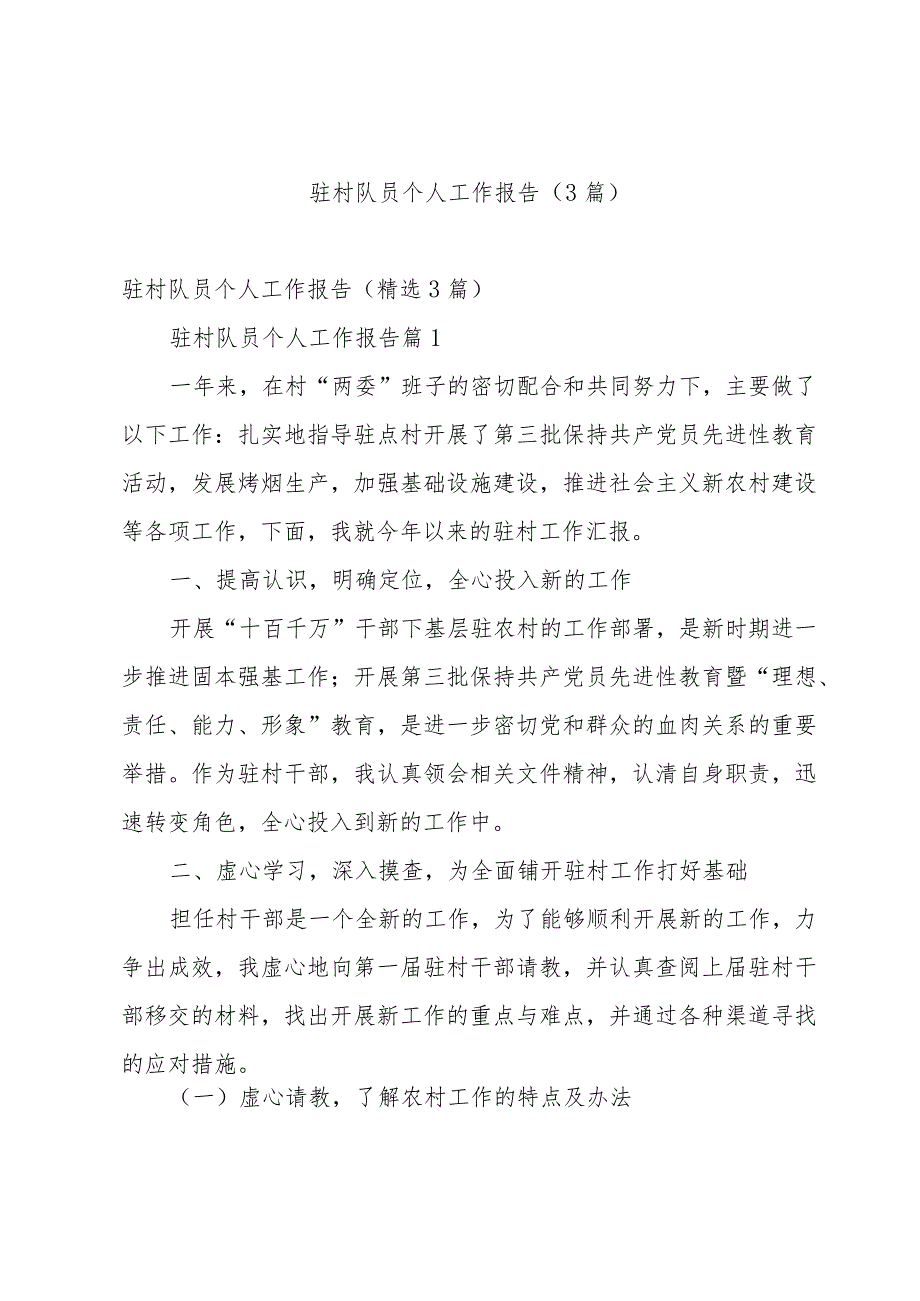 驻村队员个人工作报告（3篇）
驻村队员个人工作报告（精选3篇）
驻村队员个人工作报告篇1
一年来，在村“两委”班子的密切配合和共同努力下，主要做了
以下工作：扎实地指导驻点村开展了第三批保持共产党员先进性教育
活动，发展烤烟生产，加强基础设施建设，推进社会主义新农村建设
等各项工作，下面，我就今年以来的驻村工作汇报。
一、提高认识，明确定位，全心投入新的工作
开展“十百千万”干部下基层驻农村的工作部署，是新时期进一
步推进固本强基工作；开展第三批保持共产党员先进性教育暨“理想、
责任、能力、形象”教育，是进一步密切党和群众的血肉关系的重要
举措。作为驻村干部，我认真领会相关文件精神，认清自身职责，迅
速转变角色，全心投入到新的工作中。
二、虚心学习，深入摸查，为全面铺开驻村工作打好基础
担任村干部是一个全新的工作，为了能够顺利开展新的工作，力
争出成效，我虚心地向第一届驻村干部请教，并认真查阅上届驻村干
部移交的材料，找出开展新工作的重点与难点，并通过各种渠道寻找
的应对措施。
（一）虚心请教，了解农村工作的特点及办法